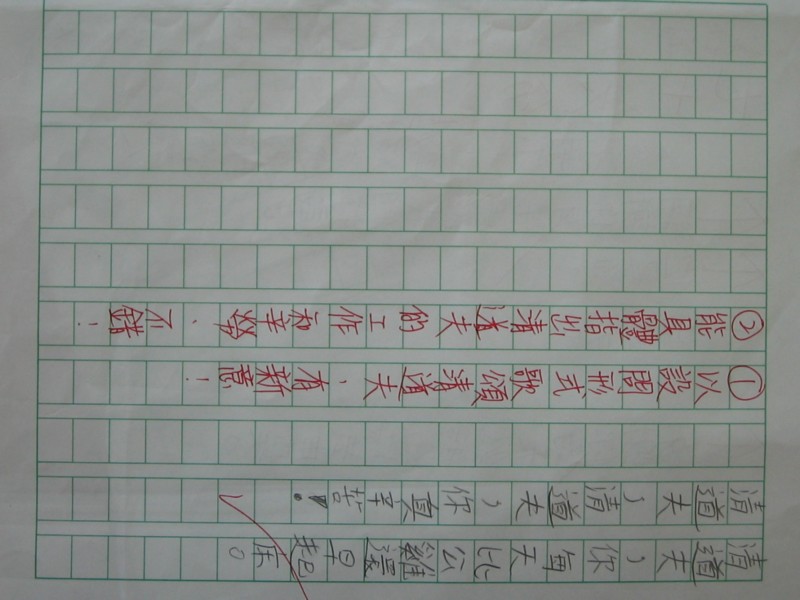 清道夫，你每天比公雞還早起床。
清道夫，清道夫，你真辛苦！
①以設問形式歌頌清道夫，有新意！
②能具體指出清道夫的工作和辛勞，不錯！